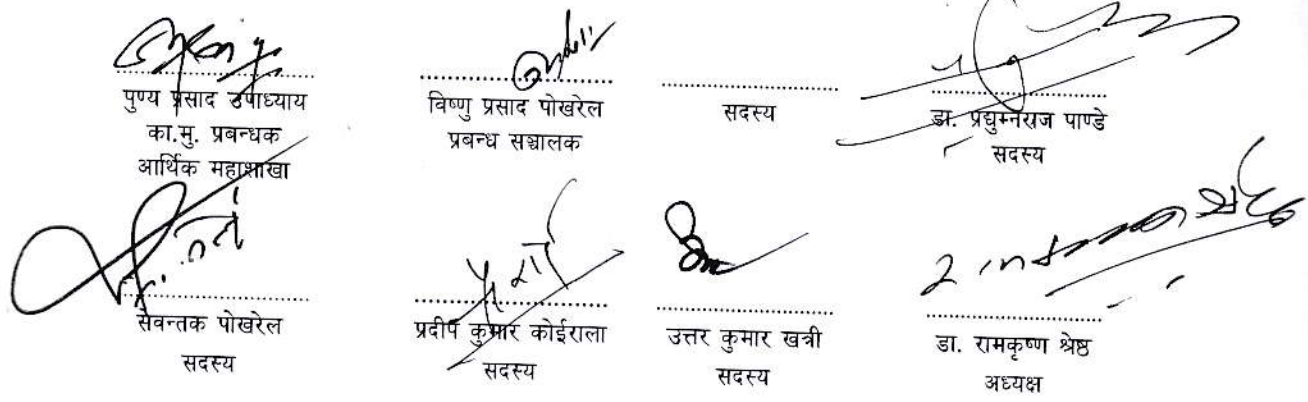 पुण्य प्रसाद उपाध्याय
का.मु. प्रबन्धक
आर्थिक महाशाखा
विष्णु प्रसाद पोखरेल
प्रबन्ध सञ्चालक
सदस्य
डा. प्रद्युम्नराज पाण्डे
सदस्य
सेवन्तक पोखरेल
सदस्य
प्रदीप कुमार कोईराला
सदस्य
उत्तर कुमार खत्री
सदस्य
डा. रामकृष्ण श्रेष्ठ
अध्यक्ष